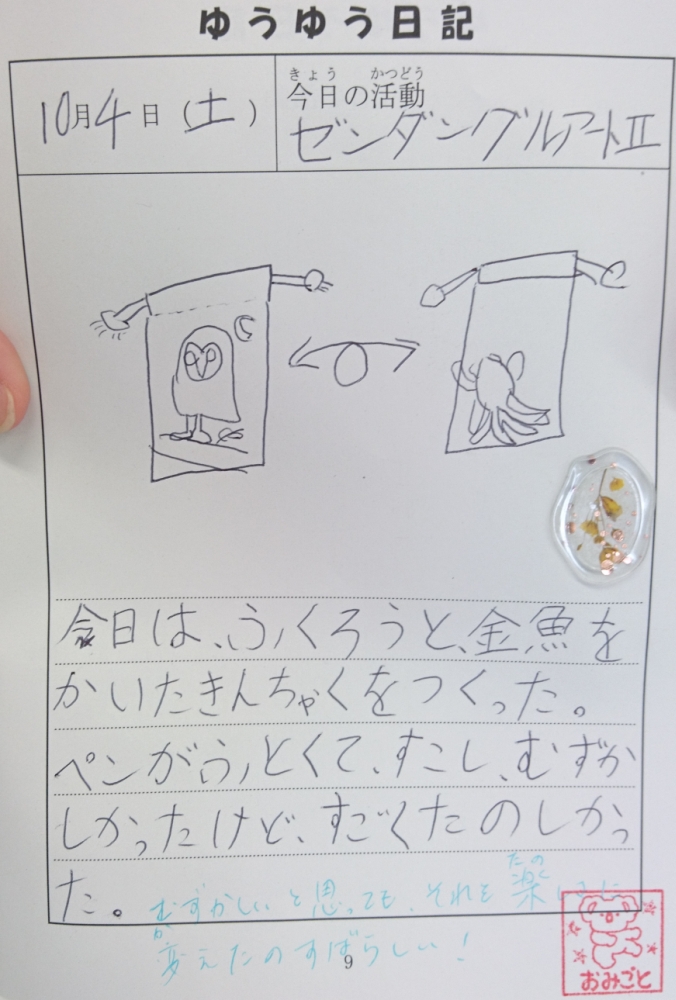 ゆうゆう日記
10月4日(土)
きょう かつどう
今日の活動
ゼンタングルアートⅡ
今日は、ふくろうと、金魚を
かいたきんちゃくをつくった。
ペンがふとくて、すこし、むずか
しかったけど、すごくたのしかっ
た。
むずかしいと思っても、それを
たの
楽しさに
か
変えたのすばらしい!
9
おみごと